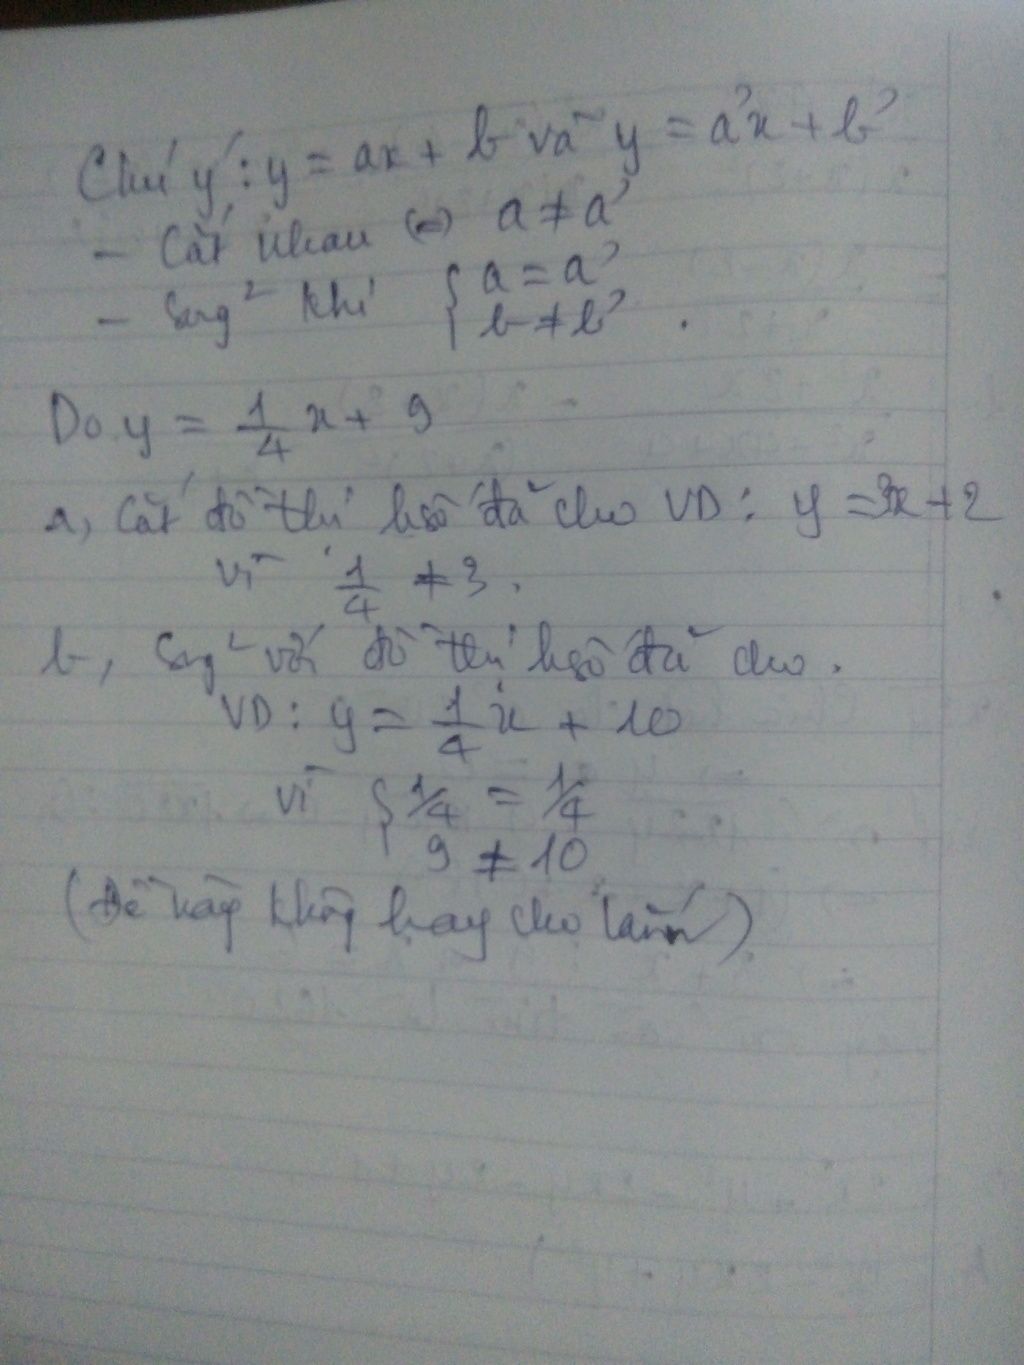 Chú ý: y = ax + b và y = a'x + b'
- Cắt nhau (=) a ≠ a'
- Sog² khi { a = a'
b ≠ b' .
Do y = 1/4 x + 9
a, Cắt đồ thị hsố đã cho VD: y = 3x + 2
vì 1/4 ≠ 3 .
b, Sog² với đồ thị hsố đã cho .
VD: y = 1/4 x + 10
vì { 1/4 = 1/4
9 ≠ 10
(Đề này không hay cho lắm)